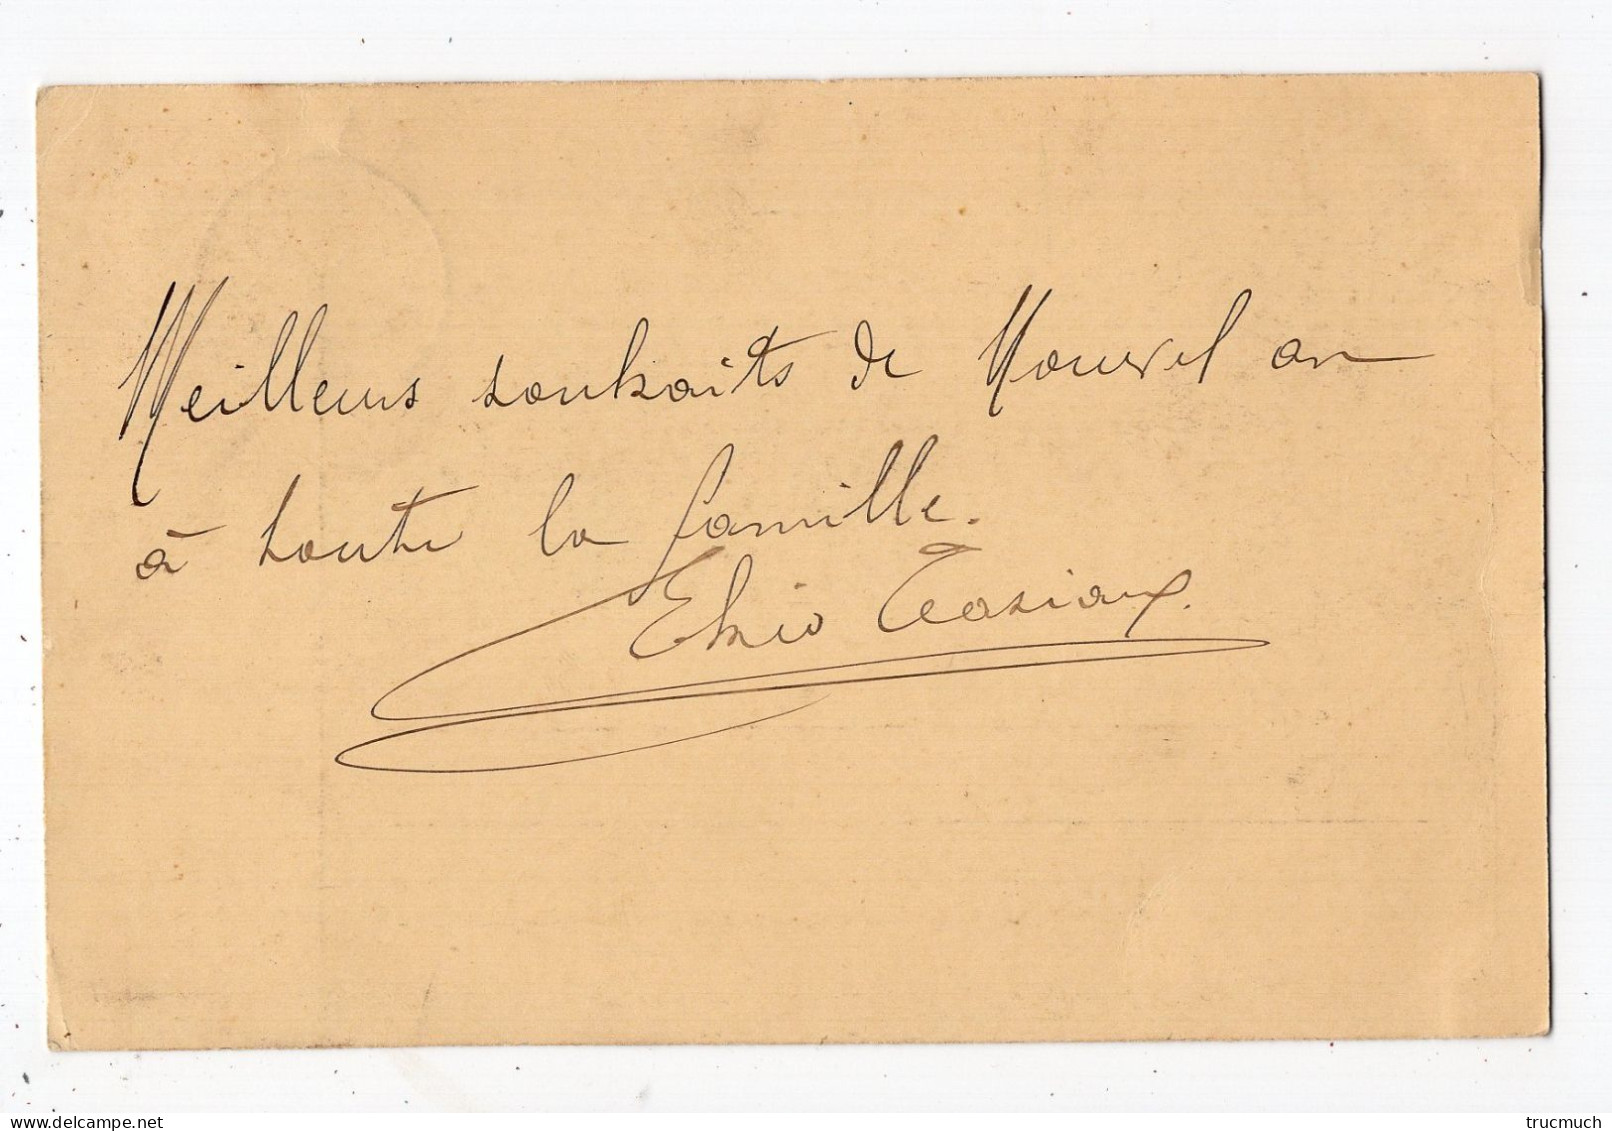 Meilleurs souhaits de Nouvel an
à toute la famille.
Tasiaux.
delcampe.net
trucmuch